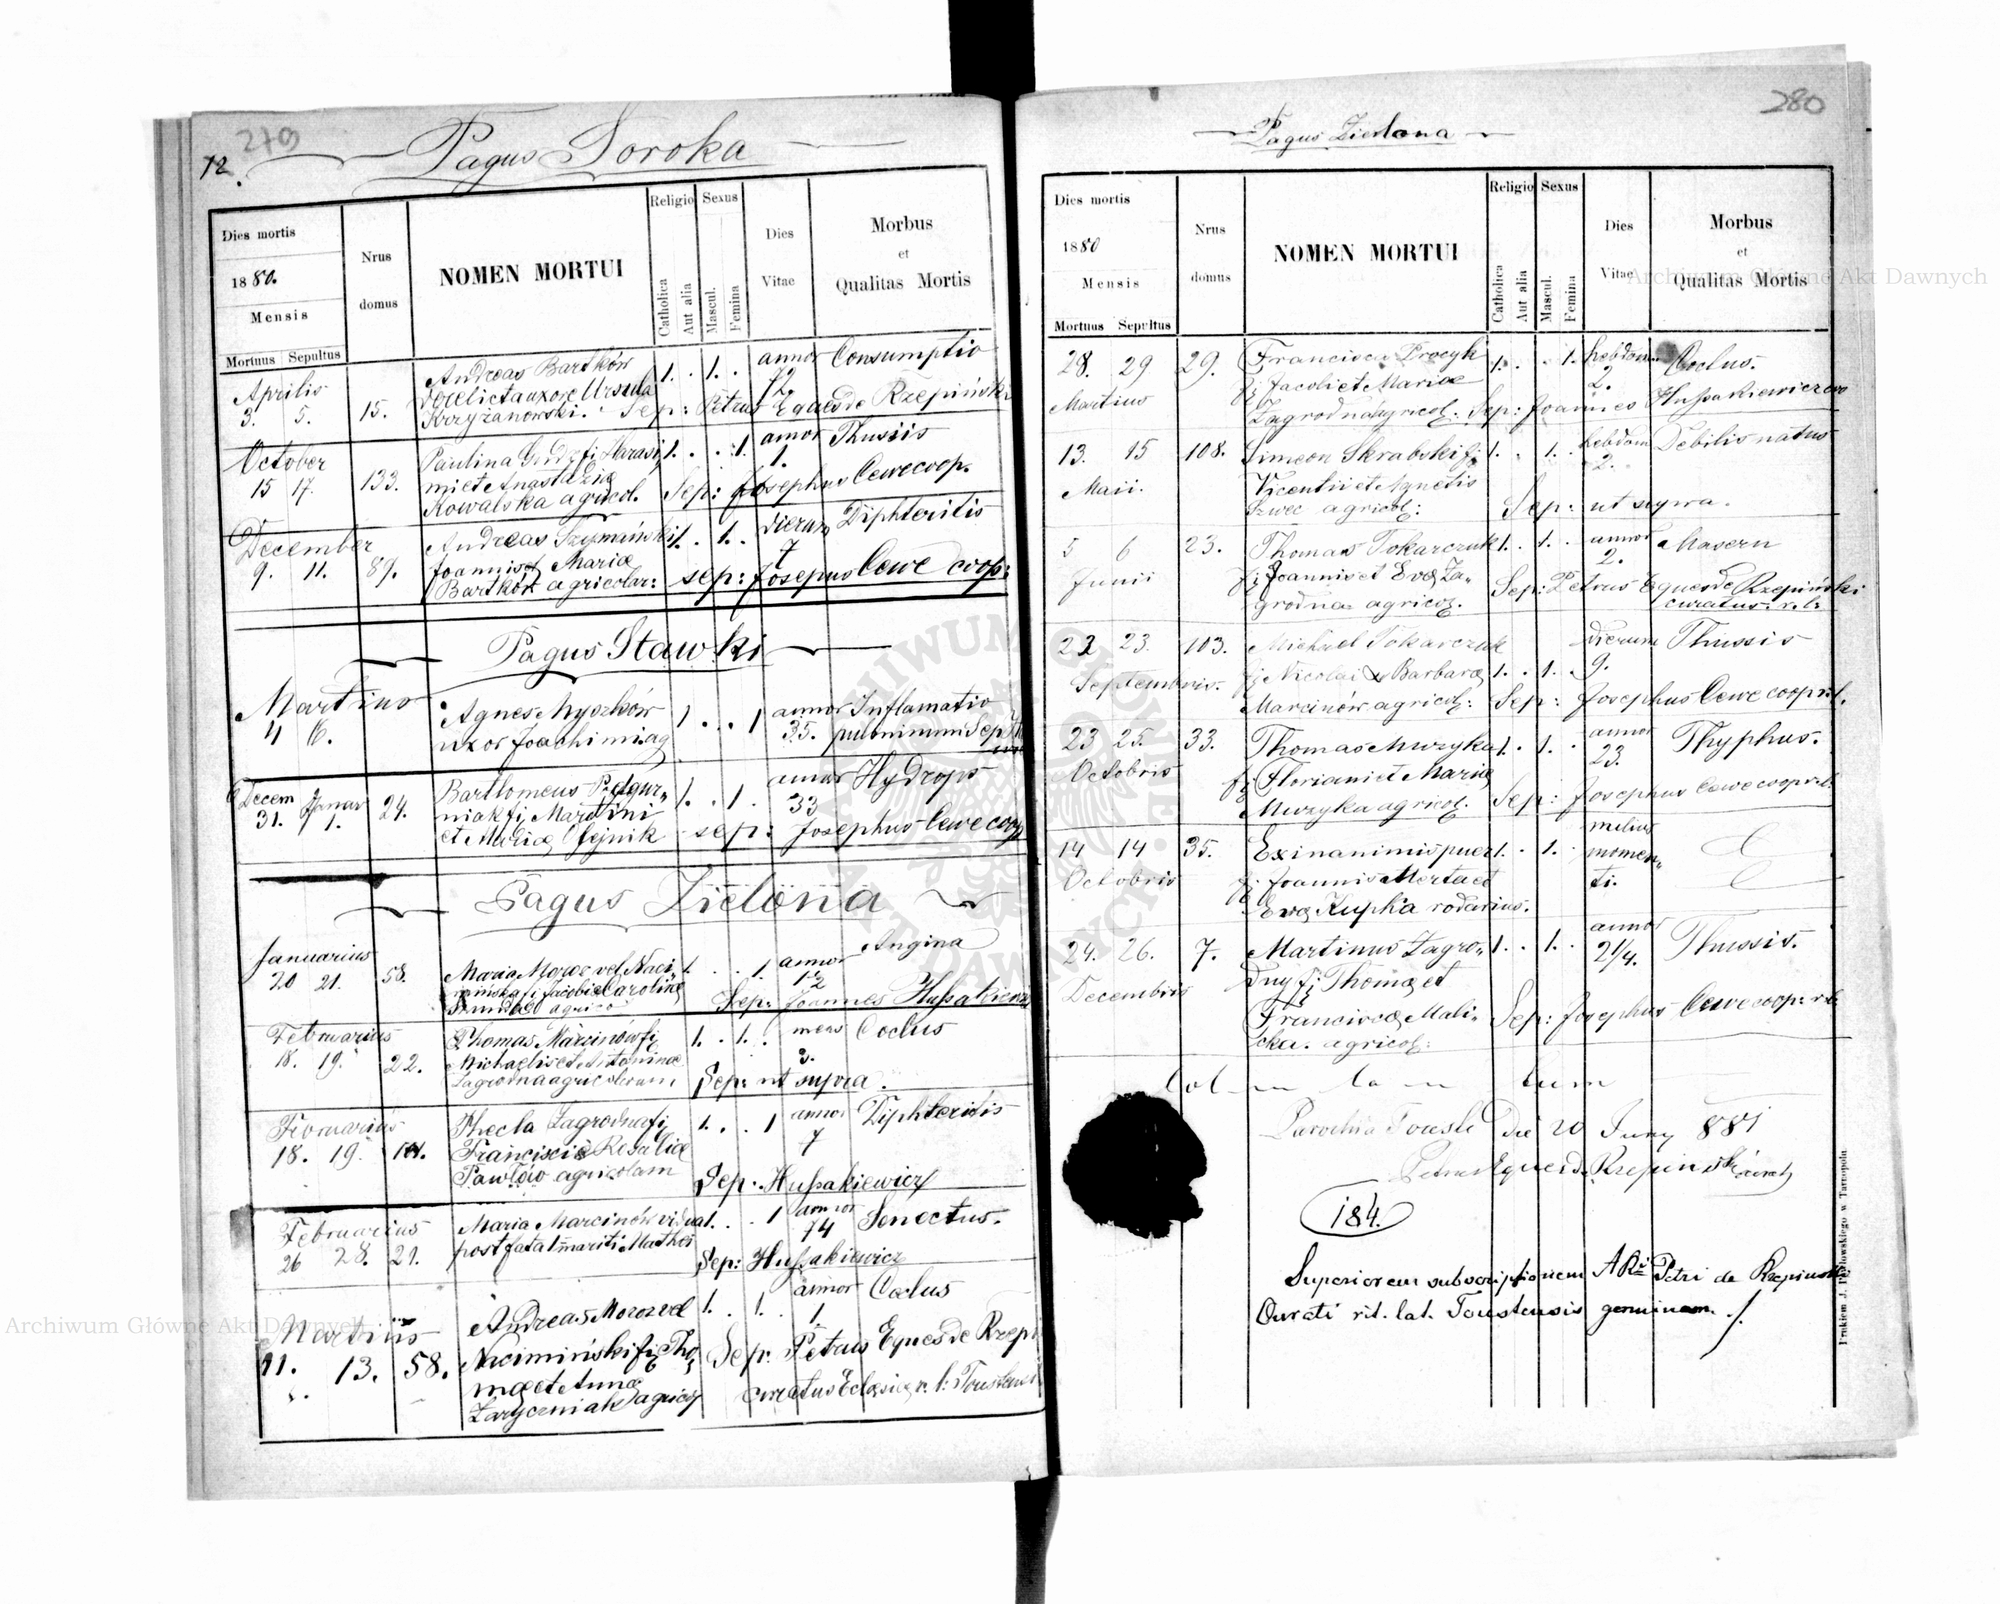 279
12.
Pagus Soroka
Dies mortis
1880.
Mensis
Mortuus Sepultus
Nrus
domus
NOMEN MORTUI
Religio
Catholica
Aut alia
Sexus
Mascul.
Femina
Dies
Vitae
Morbus
et
Qualitas Mortis
Aprilis
3. 5. 15.
Andreas Bartków
derelicta uxore Ursula
Krzyżanowski.
1. . 1. .
annor
72.
Consumptio
Sep: Petrus Eques de Rzepiński
October
15 17. 133.
Paulina
mi et Anastazia
Kowalska agricol.
1. . . 1.
annor
1.
Thussis
Sep: Josephus Cewe coop.
December
9. 11. 89.
Andreas Szymański
Joannis Mariæ
Bartków agricolar:
1. . 1. .
dierum
7
Diphteritis
sep: Josepus Cewe coop:
Pagus Stawki
Martius
4 6.
Agnes Myszków
uxor Joachimi ag
1 . . 1
annor
35.
Inflamatio
pulminum Sep
Decem Januar
31. 1. 24.
Bartlomeus
niak fi Martini
et Mariæ Olejnik
1. . 1 .
annor
33
Hydrops
sep: Josephus Cewe coop
Pagus Zielona
Januarius
20 21. 58.
Maria Moroz vel Naci
mińska fi Jacobi et Carolinæ
agrico
1. . . 1.
annor
12
Angina
Sep: Joannes Hussakiewicz
Februarius
18. 19. 22.
Thomas Marcinów fi
Michaelis et Antoninæ
Zagrodna agricolarum
1. . 1. .
mens
3.
Coclus
Sep: ut supra.
Februarius
18. 19.
Thecla Zagrodna fi
Francisci & Rosaliæ
Pawlów agricolam
1. . . 1
annor
7
Diphteritis
Sep: Hussakiewicz
Februarius
26 28. 21.
Maria Marcinów vidua
post fata mariti Mathei
1. . . 1
annor
74
Senectus.
Sep: Hussakiewicz
Martius
11. 13. 58.
Andreas Moroz vel
Nacimiński fi Tho
mæ et Annæ
Zaryczniak agricol
1. . 1. .
annor
1.
Coclus
Sep: Petrus Eques de Rzepi
curatus Eclesiæ r. l: Toustens
280
Pagus Zielona
Dies mortis
1880
Mensis
Mortuus Sepultus
Nrus
domus
NOMEN MORTUI
Religio
Catholica
Aut alia
Sexus
Mascul.
Femina
Dies
Vitae
Morbus
et
Qualitas Mortis
28. 29 29.
Martius
Francisca Procyk
fi Jacobi et Mariæ
Zagrodna agricol:
1. . . 1.
hebdom
2.
Coclus.
Sep: Joannes Hussakiewicz
13. 15 108.
Maii.
Simeon Skrabski fi
Vicentii et Agnetis
Szwec agricol:
1. . 1. .
hebdom
2.
Debilis natus
Sep: ut supra.
5 6 23.
Junii
Thomas Tokarczuk
fi Joannis et Evæ Za-
grodna agricol.
1. . 1. .
annor
2.
Masern
Sep: Petrus Eques de Rzepiński
curatus r. l:
22 23. 103.
Septembris.
Michael Tokarczuk
fi Nicolai & Barbaræ
Marcinów agricol:
1. . 1. .
dierum
9.
Thussis
Sep: Josephus Cewe coop r. l.
23 25. 33.
Octobris
Thomas Muzyka
fi Floriani et Mariæ
Muzyka agricol.
1. . 1. .
annor
23.
Thyphus.
Sep: Josephus Cewe coop r. l.
14 14 35.
Octobris
Exinanimis puer
fi Joannis Merta et
Evæ Kupka
1. . 1. .
momen-
ti.
24. 26. 7.
Decembris
Martinus Zagro-
dny fi Thomæ et
Francisca Mali-
cka. agricol:
1. . 1. .
annor
2 1/4.
Thussis.
Sep: Josephus Cewe coop: r. l:
Parochia Touste Die 20 Juny 881
Petrus Eques de Rzepiński
184.
Superiorem subscriptionem ARi Petri de Rzepiński
Curati rit. lat. Toustensis genuinam.
Drukiem J. Pawłowskiego w Tarnopolu
Archiwum Główne Akt Dawnych
Archiwum Główne Akt Dawnych
ARCHIWUM GŁÓWNE AKT DAWNYCH